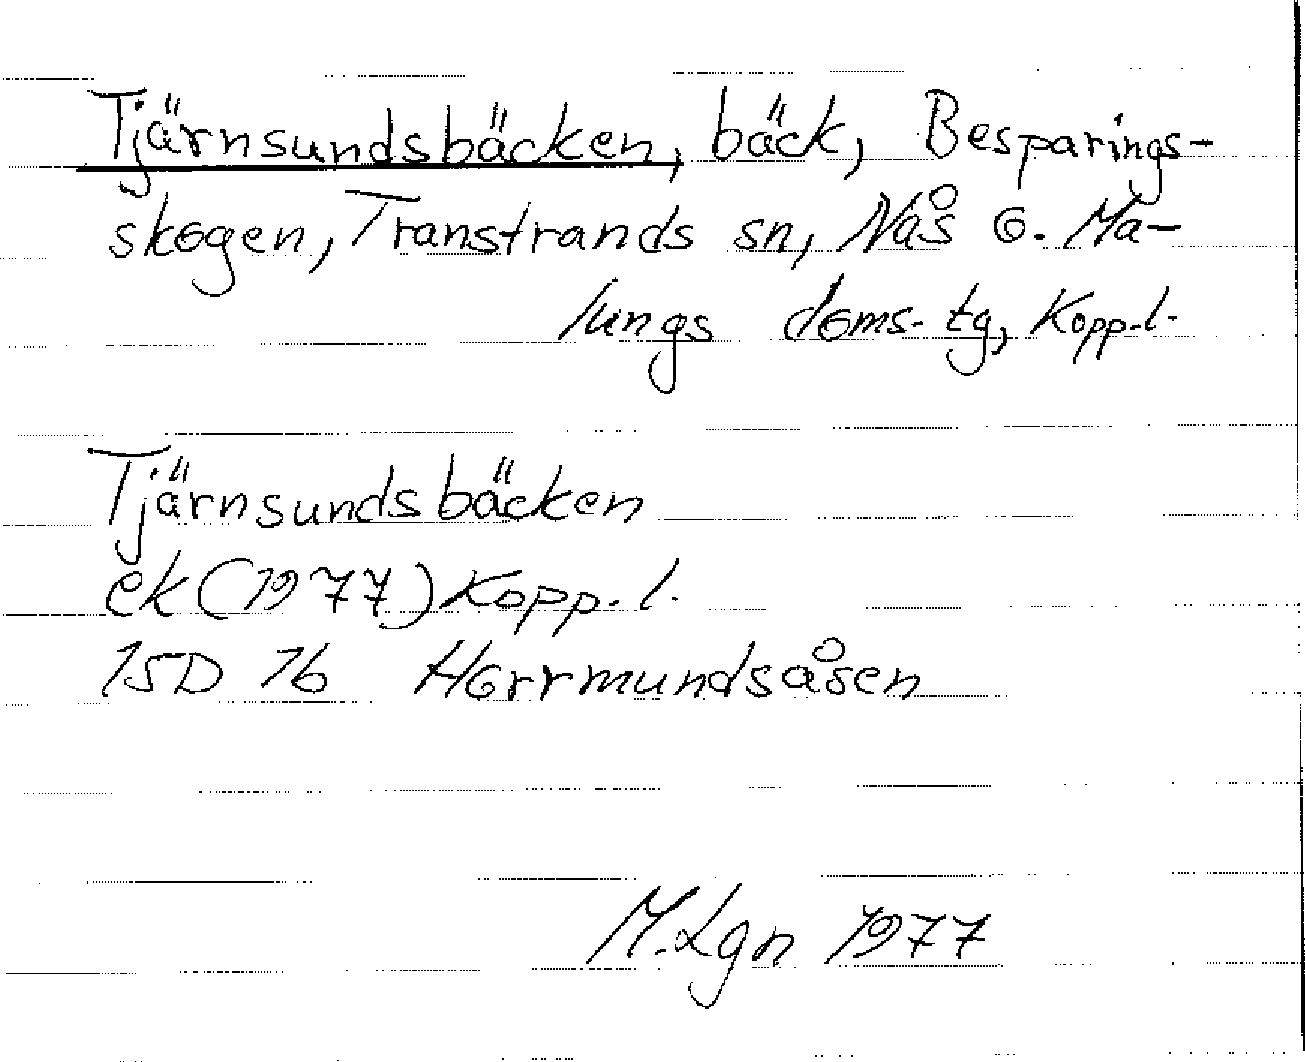 Tjärnsundsbäcken, bäck, Besparings-
skogen, Transtrands sn, Nås o. Ma-
lungs doms. tg, Kopp.l.
Tjärnsundsbäcken
ek (1977) Kopp. l.
15D 7b Horrmundsåsen
M. Lgn 1977